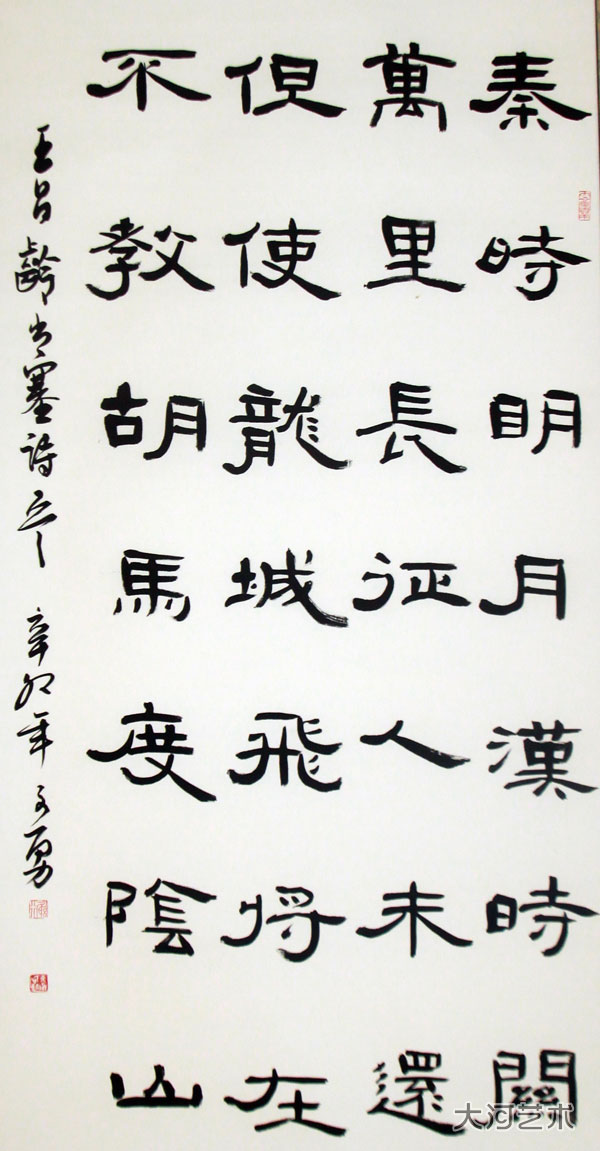 秦時明月漢時關
萬里長征人未還
但使龍城飛將在
不教胡馬度陰山
王昌齡出塞詩之一 辛卯年 子勇
大河艺术